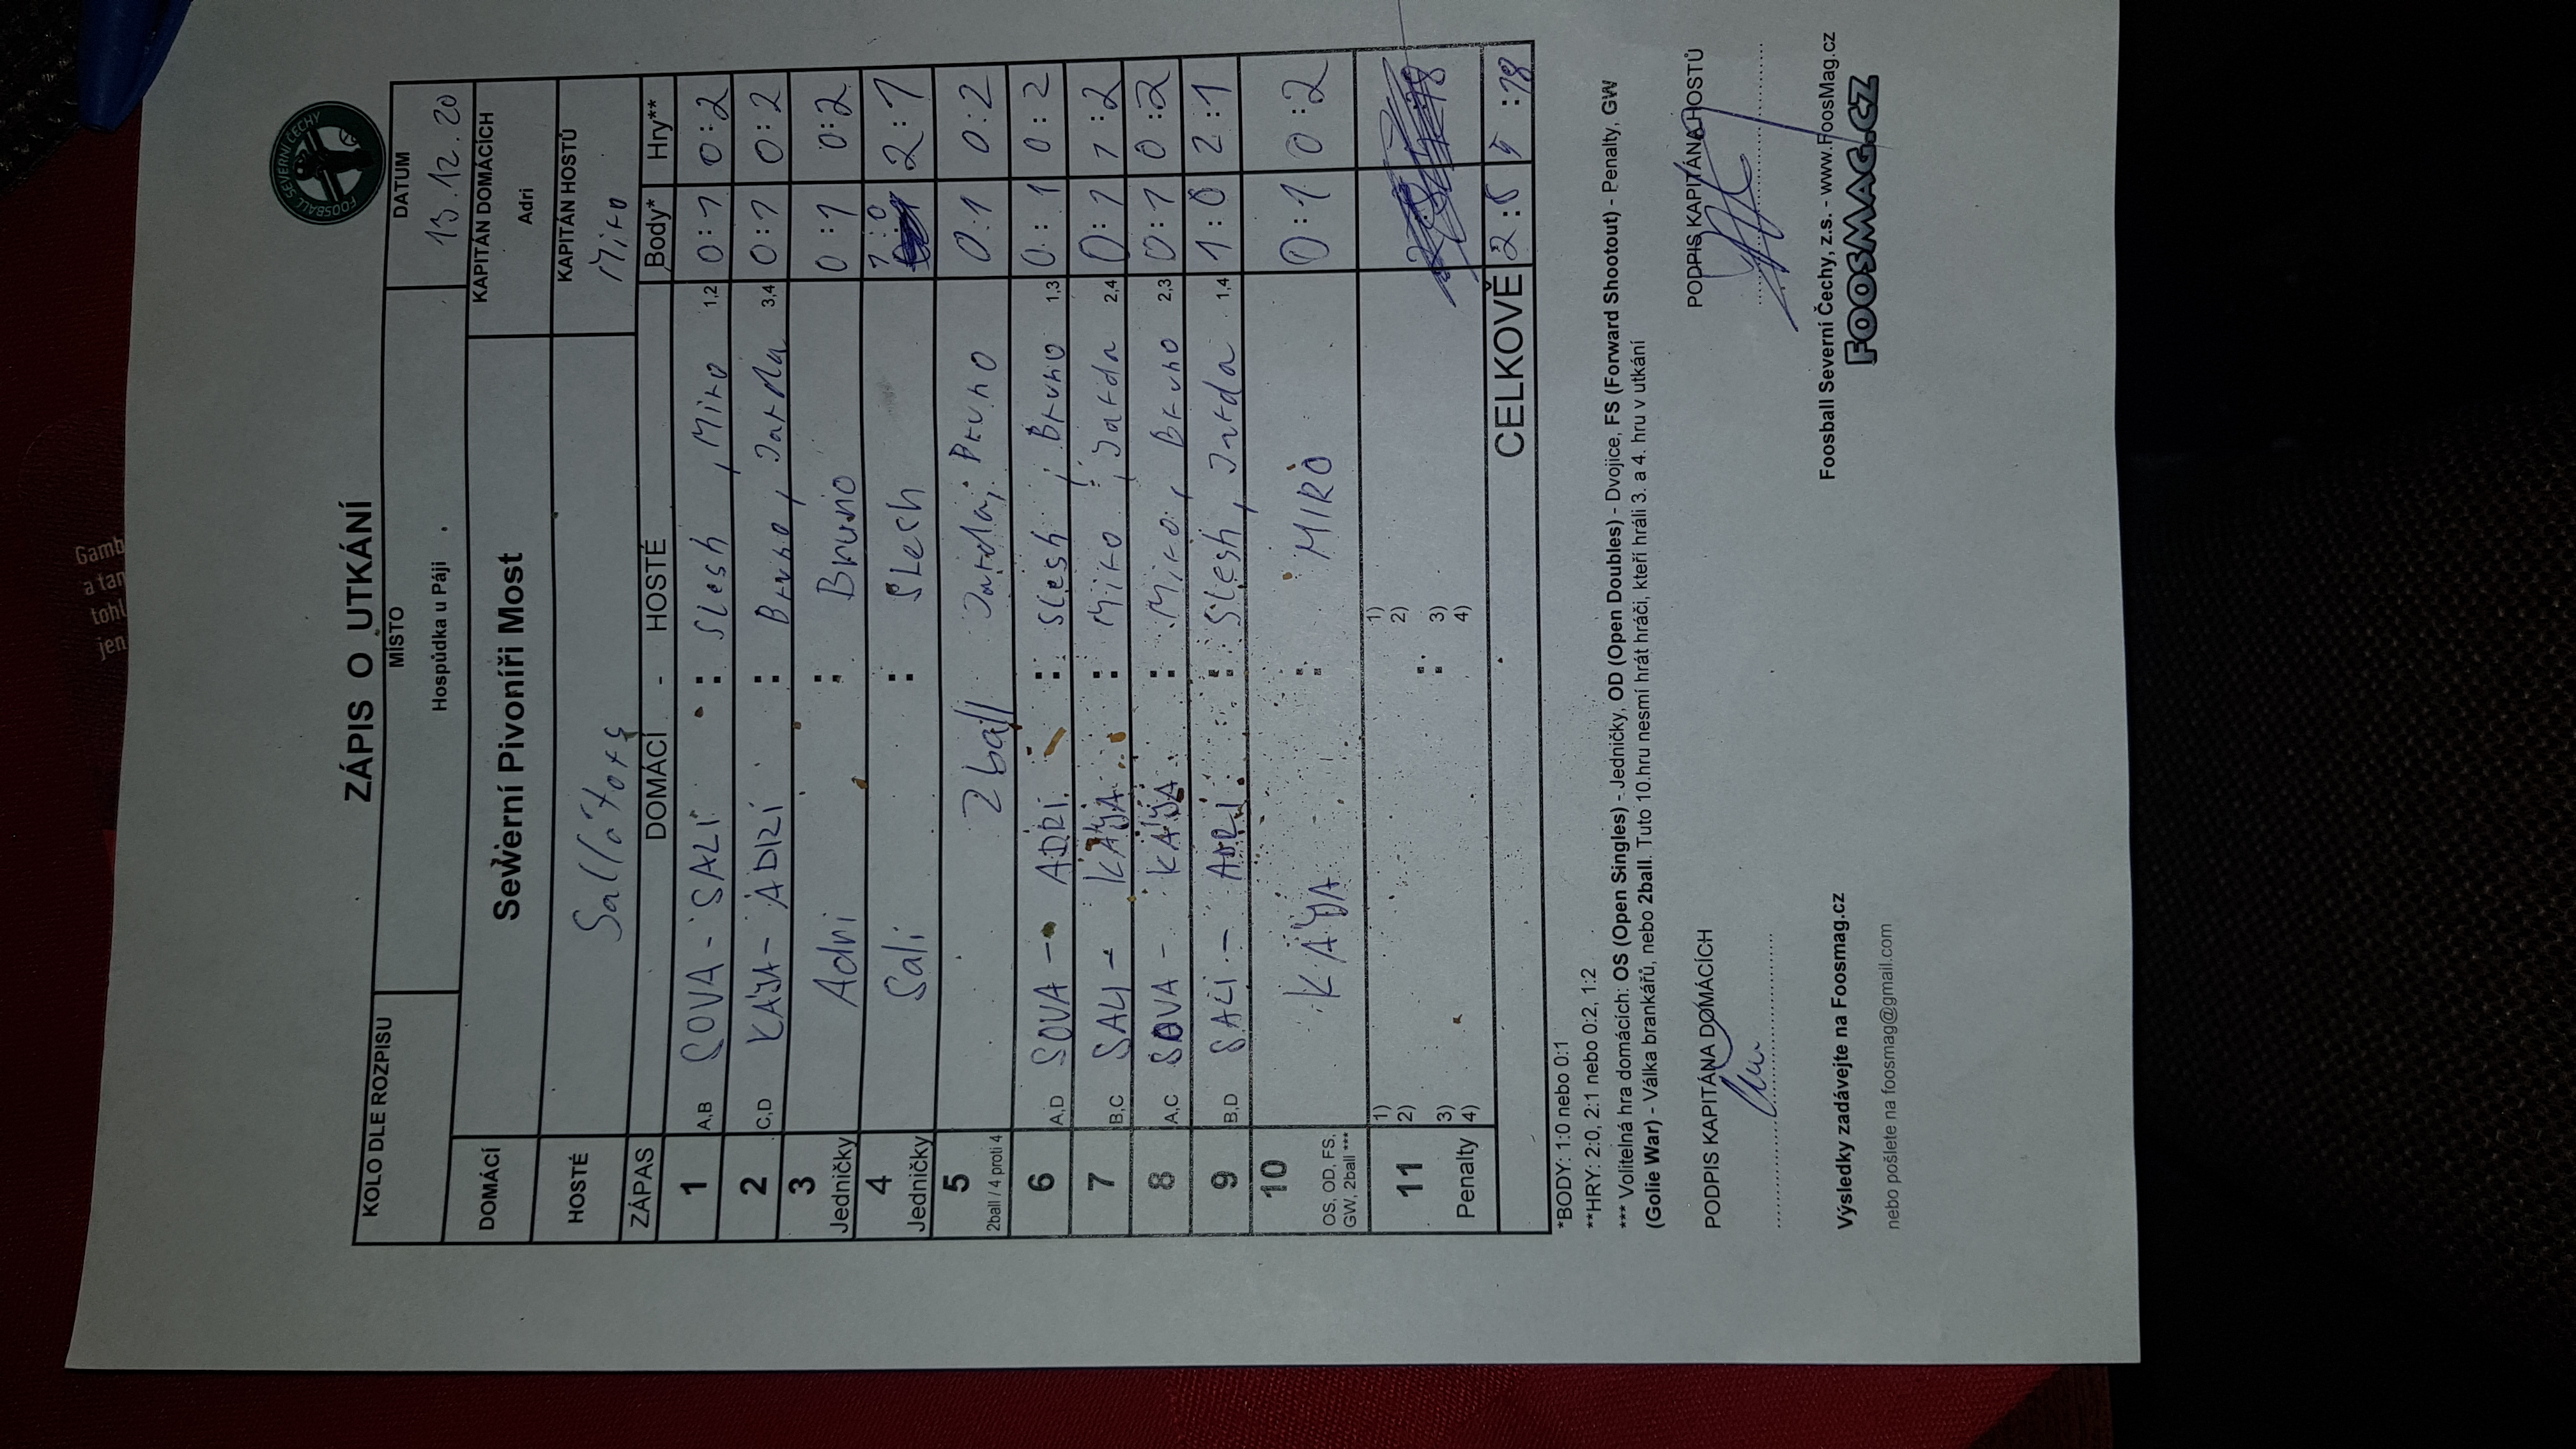 FOOSBALL SEVERNÍ ČECHY
ZÁPIS O UTKÁNÍ
KOLO DLE ROZPISU MÍSTO DATUM
Hospůdka u Páji 13.12.20
DOMÁCÍ Sewerní Pivoníři Most KAPITÁN DOMÁCÍCH
Adri
HOSTÉ KAPITÁN HOSTŮ
Miro
ZÁPAS DOMÁCÍ - HOSTÉ Body* Hry**
1 A,B SOVA - SALI : Slesh, Miro 1,2 0:1 0:2
2 C,D KÁJA - ADRI : Bruno, Jarda 3,4 0:1 0:2
3 Jedničky Adri : Bruno 0:1 0:2
4 Jedničky Sali : Slech 1:0 2:1
5 2ball / 4 proti 4 2ball Jarda, Bruno 0:1 0:2
6 A,D SOVA - ADRI : Slesh, Bruno 1,3 0:1 0:2
7 B,C SALI - KÁJA : Miro, Jarda 2,4 0:1 1:2
8 A,C SOVA - KÁJA : Miro, Bruno 2,3 0:1 0:2
9 B,D SALI - ADRI : Slesh, Jarda 1,4 1:0 2:1
10 OS, OD, FS, GW, 2ball *** KÁJA : MIRO 0:1 0:2
11 Penalty 1) 2) 3) 4) : 1) 2) 3) 4)
CELKOVĚ 2: :18
*BODY: 1:0 nebo 0:1
**HRY: 2:0, 2:1 nebo 0:2, 1:2
*** Volitelná hra domácích: OS (Open Singles) - Jedničky, OD (Open Doubles) - Dvojice, FS (Forward Shootout) - Penalty, GW
(Golie War) - Válka brankářů, nebo 2ball. Tuto 10.hru nesmí hrát hráči, kteří hráli 3. a 4. hru v utkání
PODPIS KAPITÁNA DOMÁCÍCH PODPIS KAPITÁNA HOSTŮ
Výsledky zadávejte na Foosmag.cz Foosball Severní Čechy, z.s. - www.FoosMag.cz
nebo pošlete na foosmag@gmail.com FOOSMAG.CZ
Gamb
a tan
tohl
jen